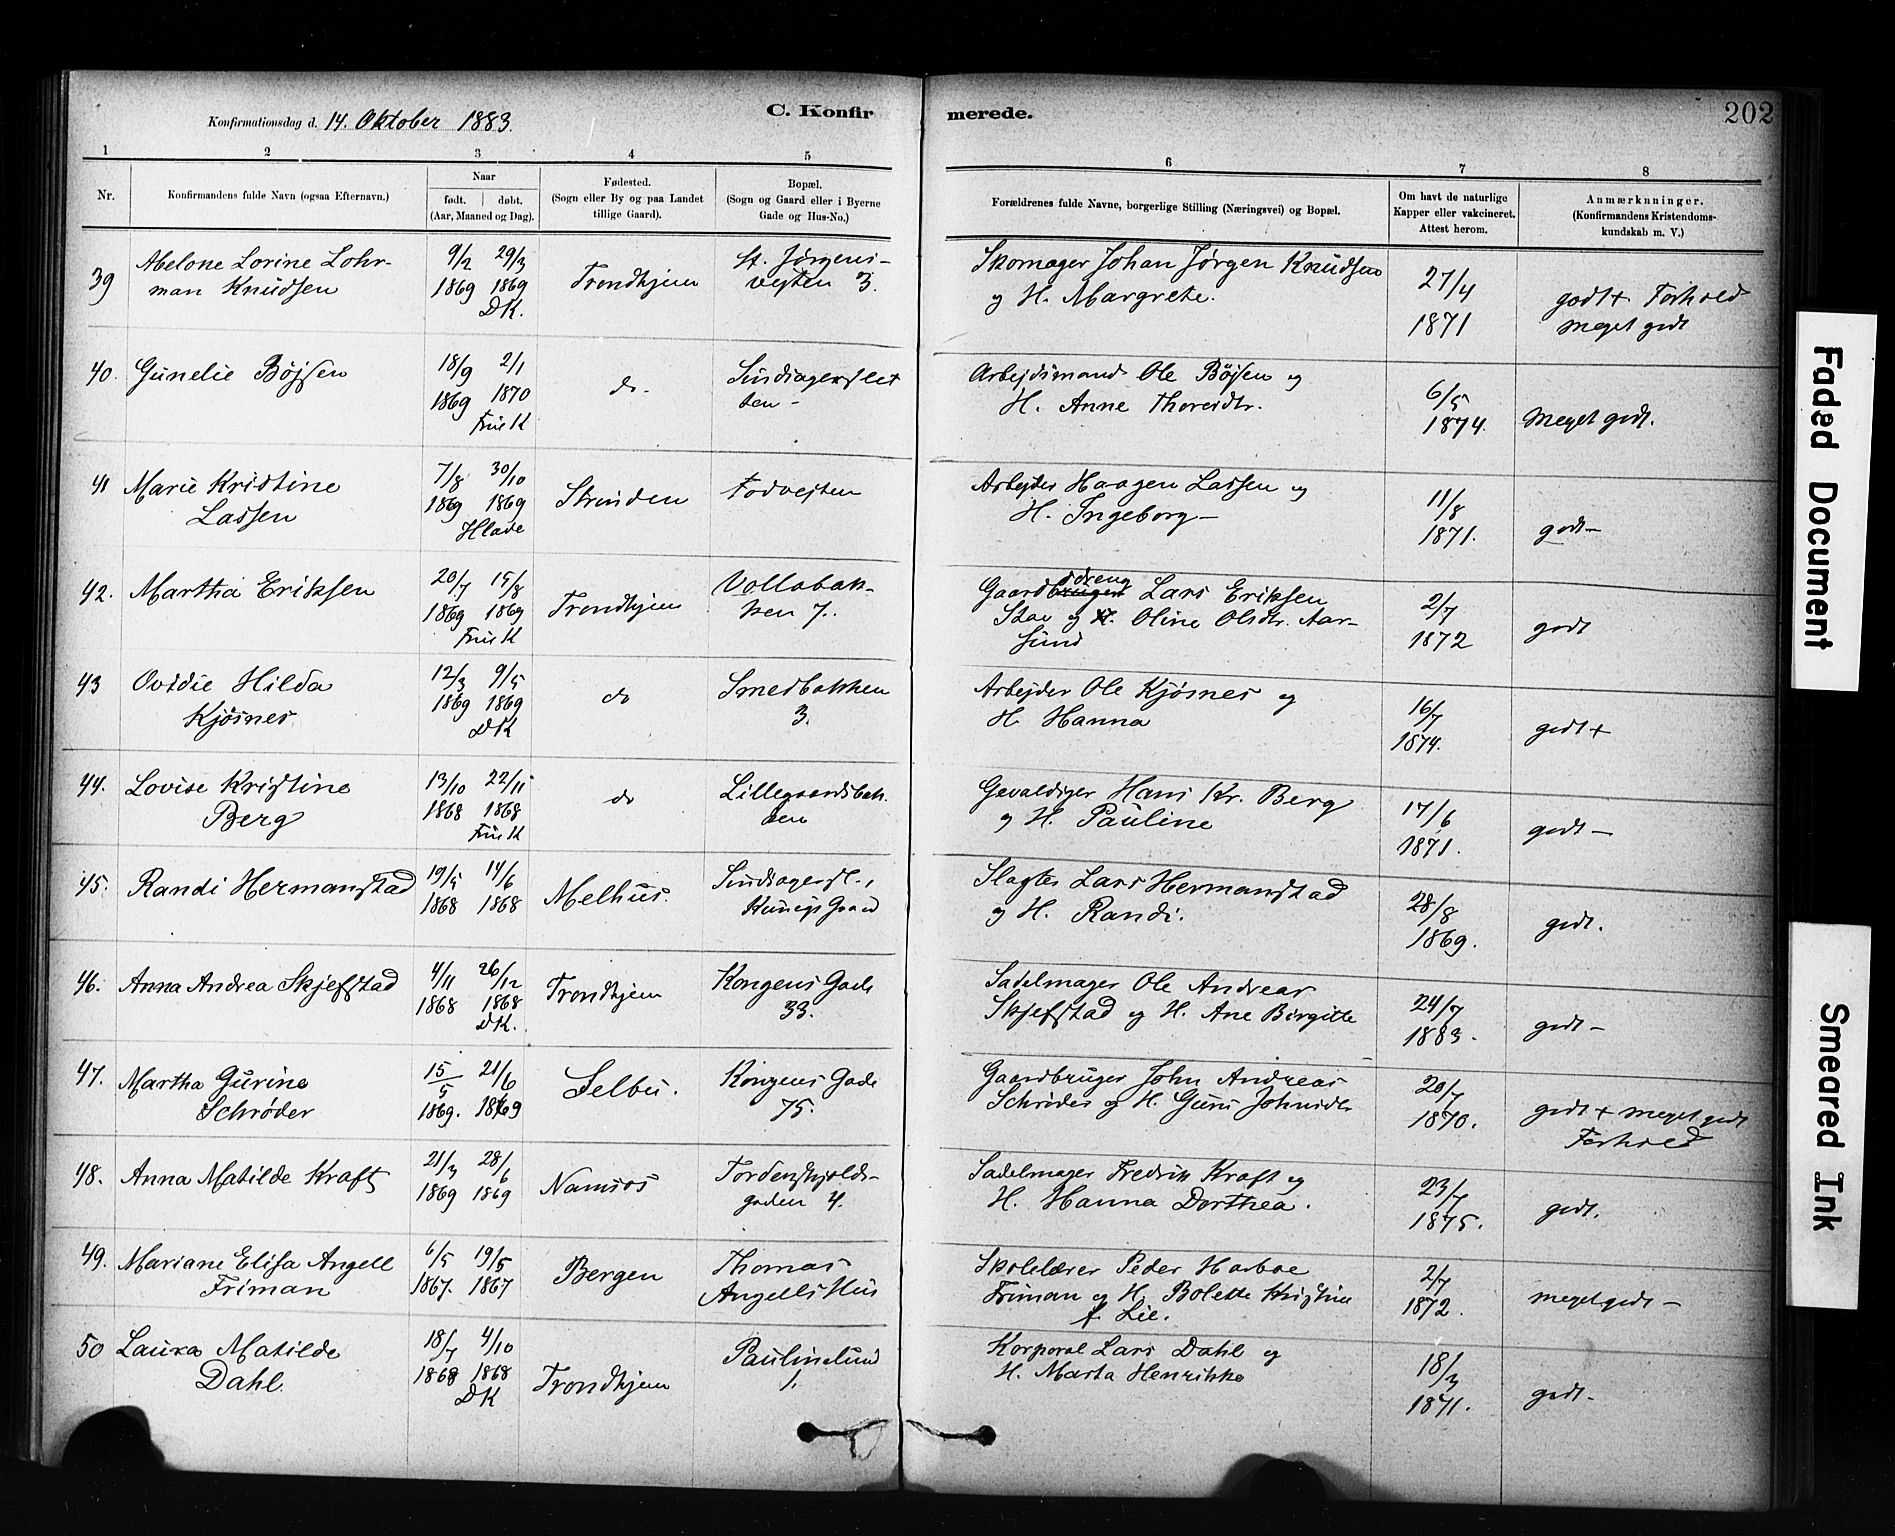 Konfirmationsdag d. 14. Oktober 1883.
C. Konfirmerede.
202
1 2 3 4 5 6 7 8
Nr.
Konfirmandens fulde Navn (ogsaa Efternavn.)
Naar
født. døbt.
(Aar, Maaned og Dag).
Fødested.
(Sogn eller By og paa Landet
tillige Gaard).
Bopæl.
(Sogn og Gaard eller i Byerne
Gade og Hus-No.)
Forældrenes fulde Navne, borgerlige Stilling (Næringsvei) og Bopæl.
Om havt de naturlige
Kapper eller vakcineret.
Attest herom.
Anmærkninger.
(Konfirmandens Kristendoms-
kundskab m. V.)
39 Abelone Lorine Lohr- 9/2 29/3 Trondhjem St. Jørgens- Skomager Johan Jørgen Knudsen 27/4 godt + Forhold
man Knudsen 1869 1869 vejten 3. og H. Margrete. 1871 meget godt
DK.
40. Gunelie Bøjsen 18/9 2/1 do- Arbejdsmand Ole Bøjsen og 6/5 meget godt.
1869 1870 ten - H. Anne Thoresdtr. 1874.
Frue K
41 Marie Kristine 7/8 30/10 Strinden Fodvejten Arbejder Haagen Lassen og 11/8 godt-
Lassen 1869 1869 H. Ingeborg- 1871.
Hlade
42. Martha Eriksen 20/7 15/8 Trondhjem Vollabak- Gaardsdreng Lars Eriksen 2/7 godt
1869 1869 ken 7. og Oline Olsdtr. Aar- 1872
Frue K sund
43 Ovidie Hilda 12/3 9/5 do Smedbakken Arbejder Ole Kjøsnes og 16/7 godt +
Kjøsnes 1869 1869 3. H. Hanna 1874.
DK
44. Lovise Kristine 13/10 22/11 do Lillegaardsbak- Gevaldiger Hans Kr. Berg 17/6 godt-
Berg 1868 1868 ken og H. Pauline 1871.
Frue K
45. Randi Hermanstad 19/5 14/6 Melhus. Slagter Lars Hermanstad 28/8 godt.
1868 1868 Gaard og H. Randi. 1869.
46. Anna Andrea Skjefstad 4/11 26/12 Trondhjem Kongens Gade Sadelmager Ole Andreas 24/7 godt-
1868 1868 33. Skjefstad og H. Ane Birgitte 1883.
DK.
47. Martha Gurine 15/5 21/6 Selbu. Kongens Gade Gaardbruger John Andreas 20/7 godt + meget godt
Schrøder 1869. 1869 75. Schrøder og H. Guru Johnsdtr 1870. Forhold
48. Anna Matilde Kraft 21/3 28/6 Namsos Tordenskjolds- Sadelmager Fredrik Kraft og 23/7 godt.
1869 1869 gaden 4. H. Hanna Dorthea. 1875.
49. Mariane Elisa Angell 6/5 19/5 Bergen Thomas Skolelærer Peder Harboe 2/7 meget godt-
Friman 1867. 1867 Angells Hus Friman og H. Bolette Kristine 1872.
f. Lie.
50 Laura Matilde 18/7 4/10 Trondhjem Paulinelund Korporal Lars Dahl og 18/3 godt-
Dahl. 1868 1868 1. H. Marta Henrikke 1871.
DK
Faded Document
Smeared Ink